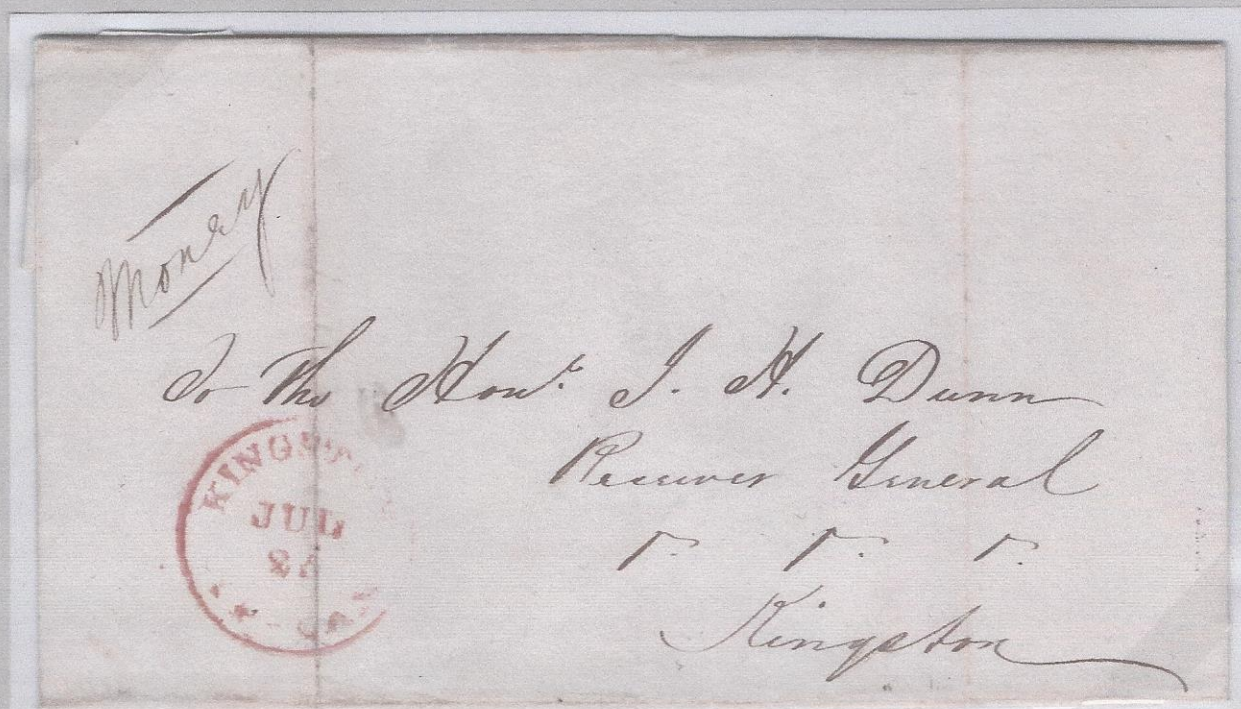 Money
To The Hon^ble J. H. Dunn
Receiver General
&c. &c. &c.
Kingston
KINGST
JUL